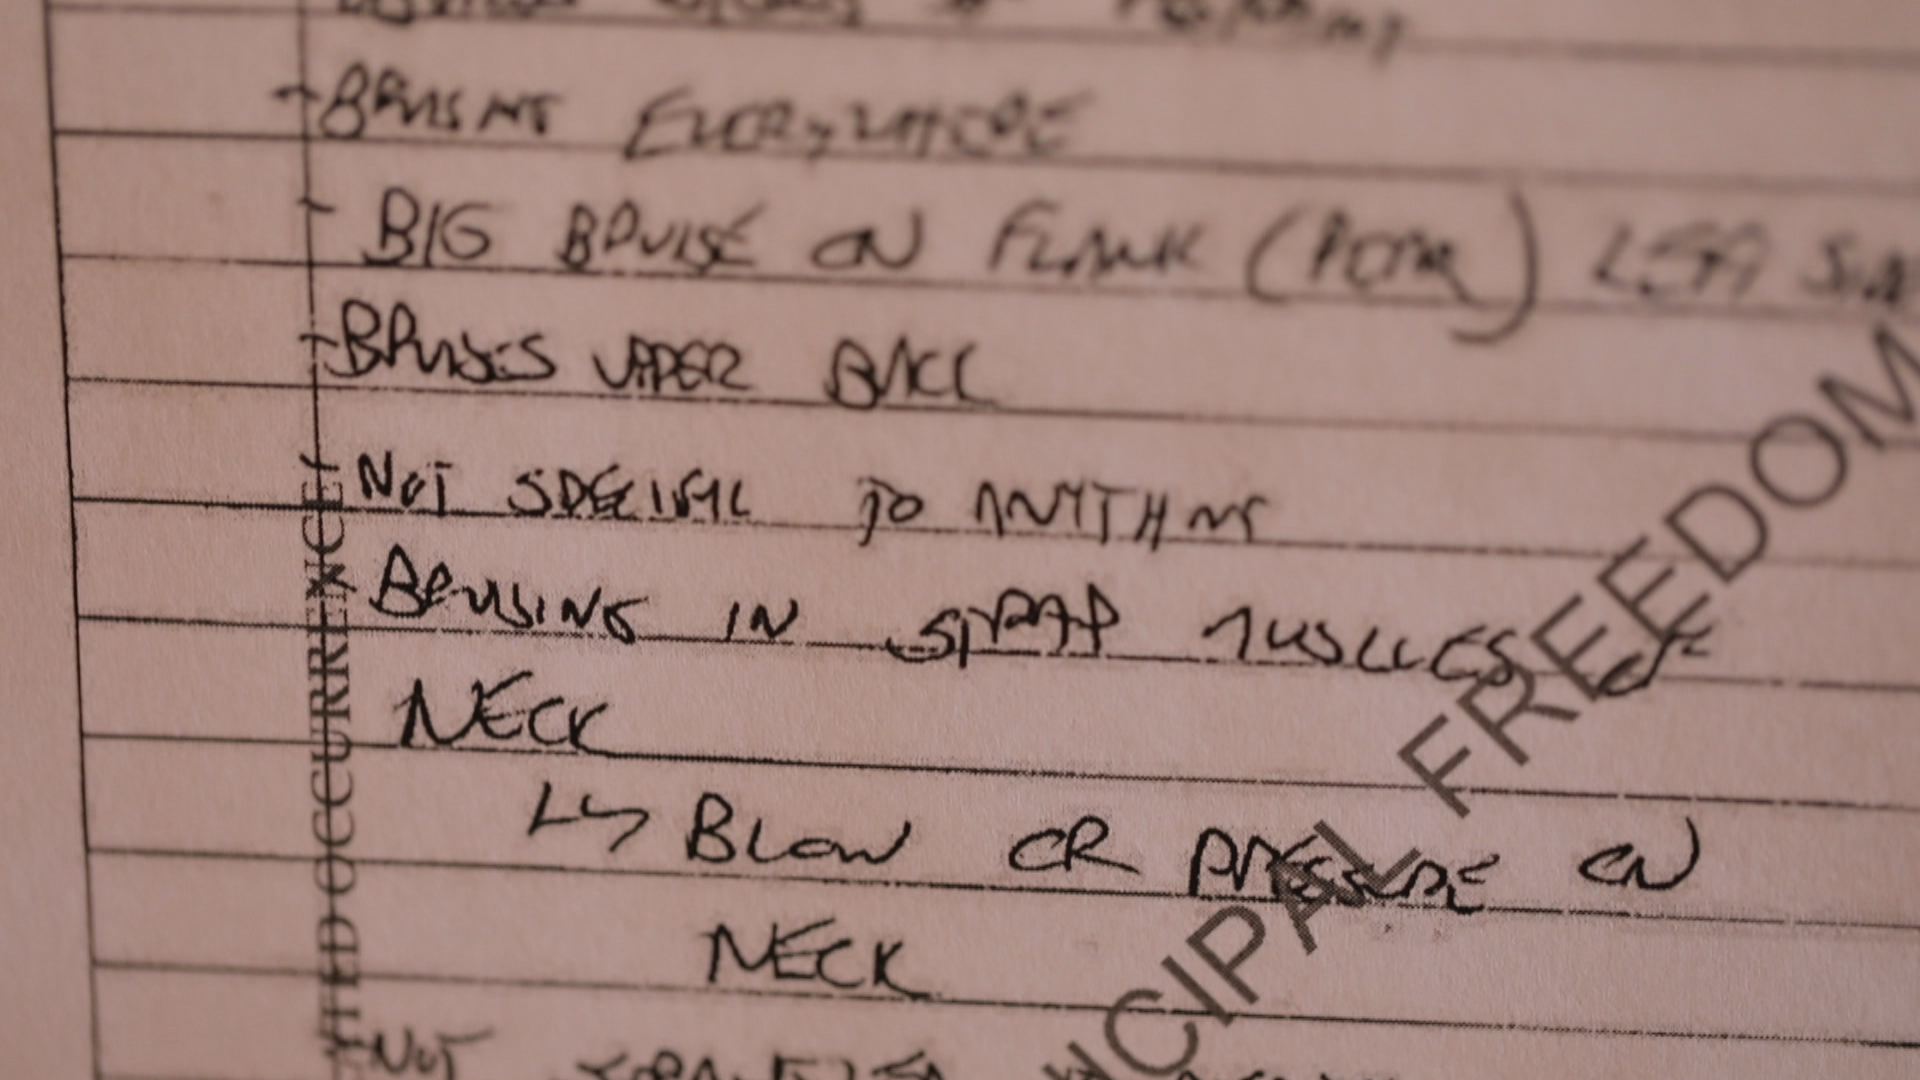 - BRUISING EVERYWHERE
- BIG BRUISE ON FLANK ( ) LEFT SIDE
- BRUISES UPPER BACK
- NOT SPECIFIC TO ANYTHING
- BRUISING IN STRAP MUSCLES OF
NECK
↳ BLOW OR PRESSURE ON
NECK
NOT
NCIPAL FREEDOM
TED OCCURRENCE